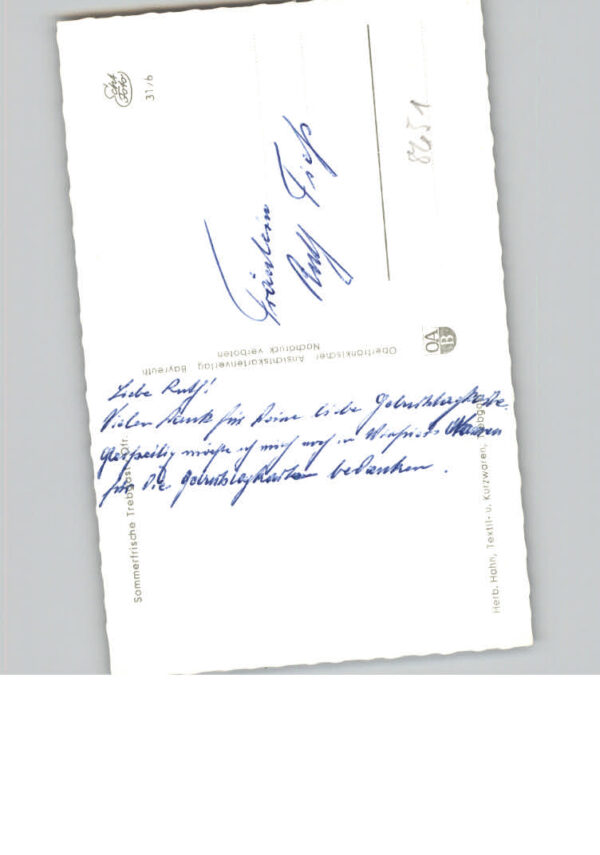 Echt
Foto
31/6
8651
Fräulein
Ruth Fieß
Oberfränkischer Ansichtskartenverlag Bayreuth
Nachdruck verboten
OA
B
Liebe Ruth!
Vielen Dank für Deine liebe Geburtstagskarte.
Gleichzeitig möchte ich mich noch in Winfrieds Namen
für die Geburtstagkarten bedanken.
Sommerfrische Trebgast Ofr.
Herb. Hahn, Textil- u. Kurzwaren, Trebgast